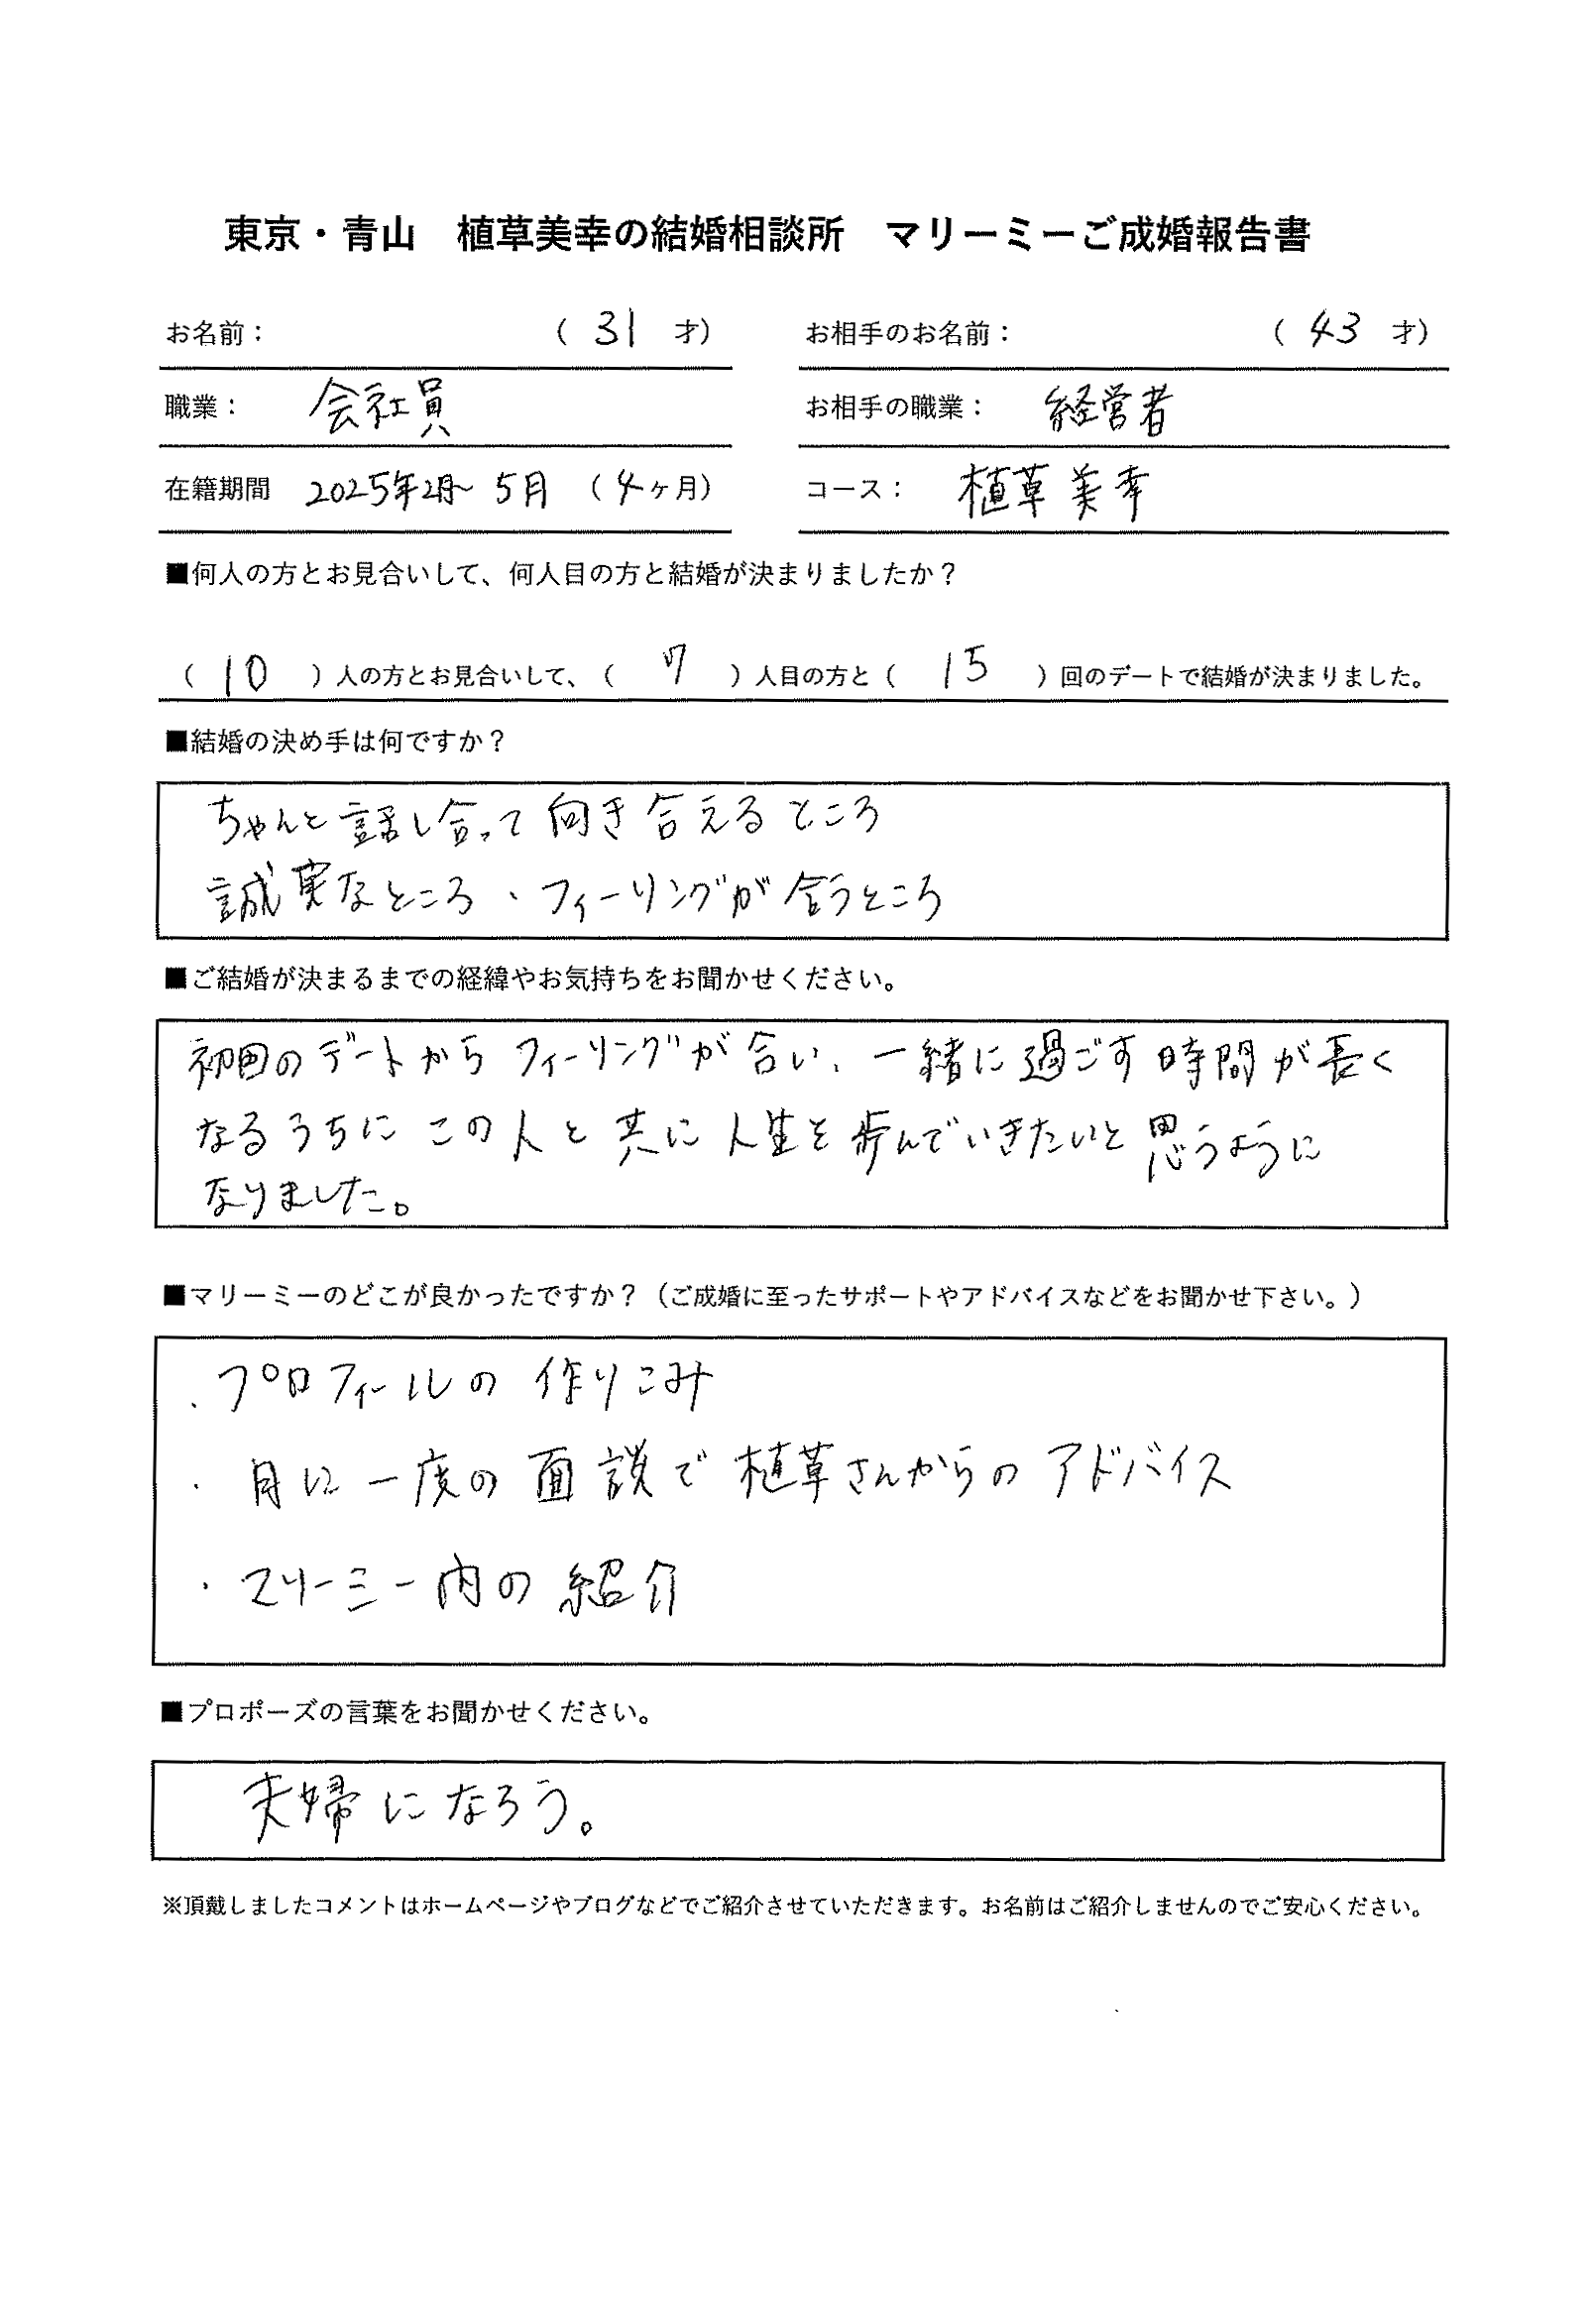 東京・青山　植草美幸の結婚相談所　マリーミーご成婚報告書
お名前：　（ 31 才）　お相手のお名前：　（ 43 才）
職業：　会社員　お相手の職業：　経営者
在籍期間　2025年2月～5月（4ヶ月）　コース：　植草美幸
■何人の方とお見合いして、何人目の方と結婚が決まりましたか？
（ 10 ）人の方とお見合いして、（ 7 ）人目の方と（ 15 ）回のデートで結婚が決まりました。
■結婚の決め手は何ですか？
ちゃんと話し合って向き合えるところ
誠実なところ、フィーリングが合うところ
■ご結婚が決まるまでの経緯やお気持ちをお聞かせください。
初回のデートからフィーリングが合い、一緒に過ごす時間が長く
なるうちにこの人と共に人生を歩んでいきたいと思うように
なりました。
■マリーミーのどこが良かったですか？（ご成婚に至ったサポートやアドバイスなどをお聞かせ下さい。）
・プロフィールの作りこみ
・月に一度の面談で植草さんからのアドバイス
・マリーミー内の紹介
■プロポーズの言葉をお聞かせください。
夫婦になろう。
※頂戴しましたコメントはホームページやブログなどでご紹介させていただきます。お名前はご紹介しませんのでご安心ください。